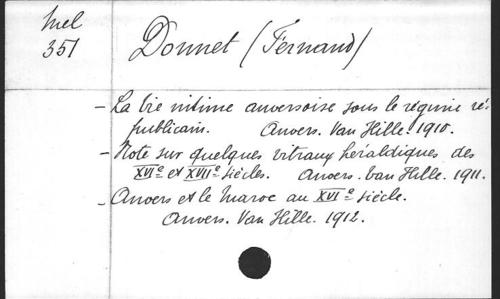 Mel
351
Donnet (Fernand)
- La vie intime anversoise sous le régime ré-
publicain. Anvers. Van Hille. 1910.
- Note sur quelques vitraux héraldiques des
XVIe et XVIIe siècles. Anvers. Van Hille. 1911.
- Anvers et le Maroc au XVIe siècle.
Anvers. Van Hille. 1912.